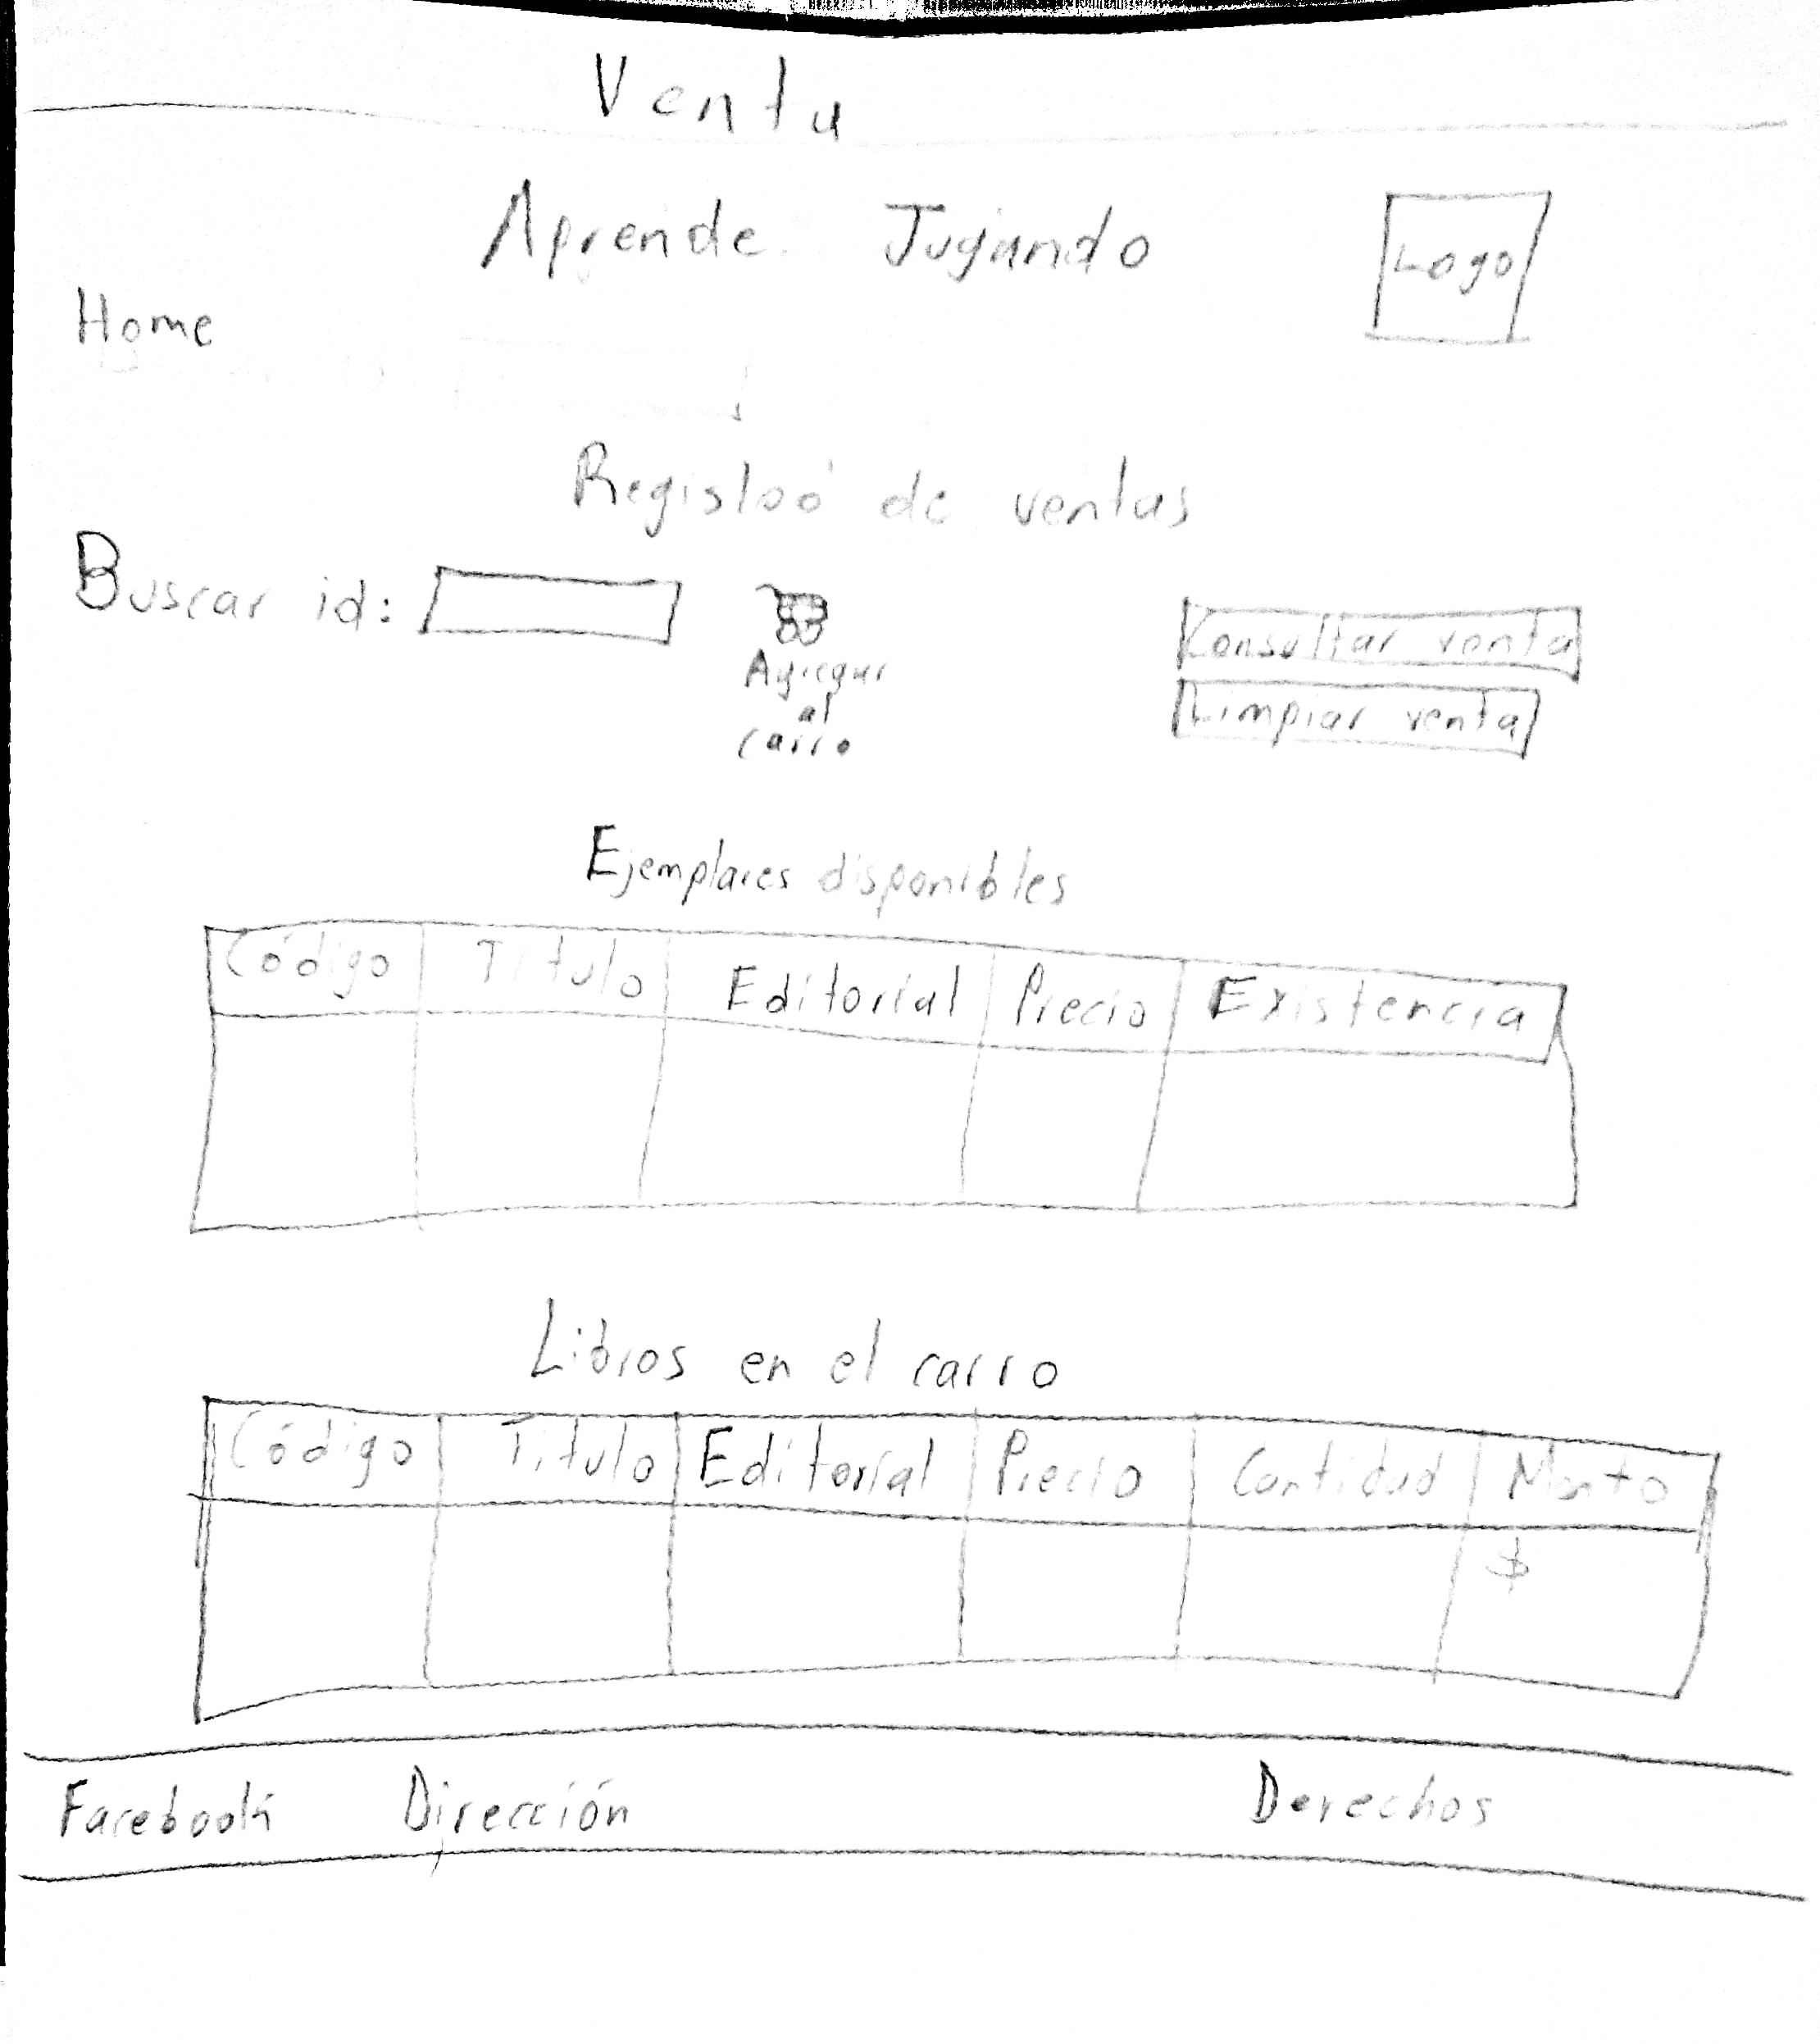 Venta
Aprende Jugando
Logo
Home
Registro de ventas
Buscar id:
Agregar
al
carro
Consultar venta
Limpiar venta
Ejemplares disponibles
Código Titulo Editorial Precio Existencia
Libros en el carro
Código Titulo Editorial Precio Cantidad Monto
$
Facebook Dirección Derechos